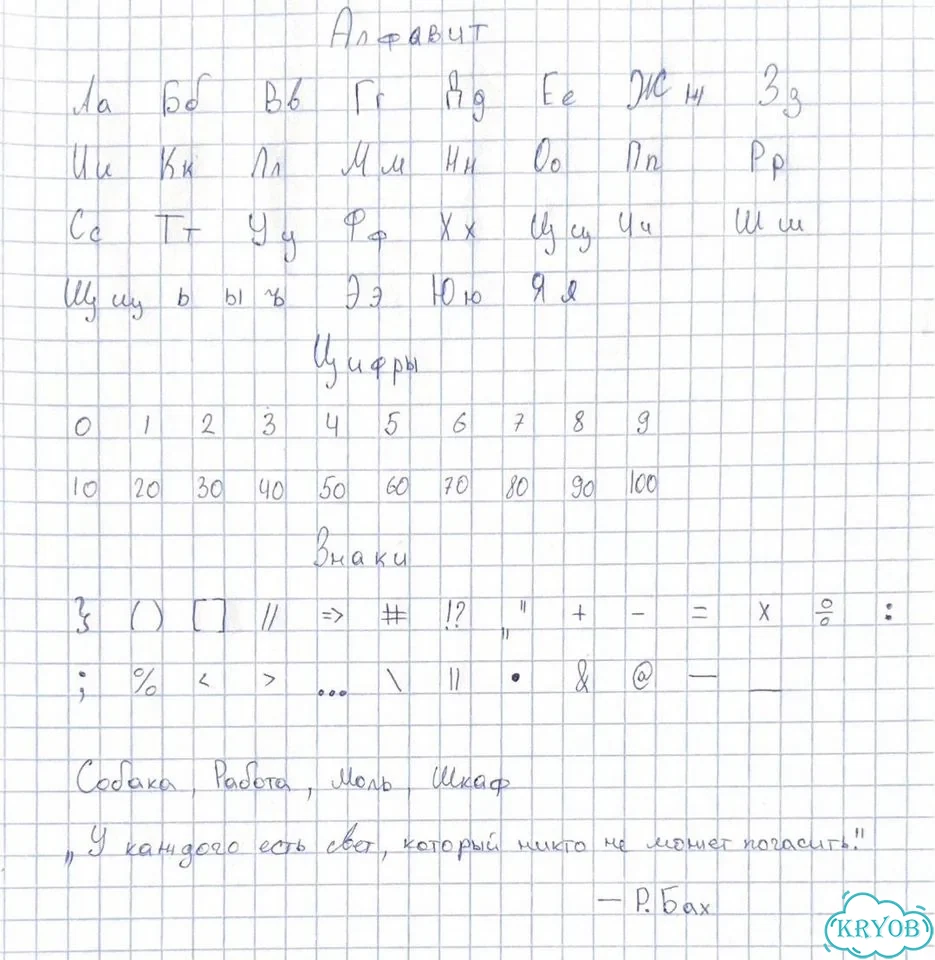 Алфавит
Аа Бб Вв Гг Дд Ее Жж Зз
Ии Кк Лл Мм Нн Оо Пп Рр
Сс Тт Уу Фф Хх Цц Чч Шш
Щщ ь ы ъ Ээ Юю Яя
Цифры
0 1 2 3 4 5 6 7 8 9
10 20 30 40 50 60 70 80 90 100
Знаки
} ( ) [ ] // => # !? „" + - = × ÷ :
; % < > ... \ || • & @ — _
Собака, Работа, Моль, Шкаф
„У каждого есть свет, который никто не может погасить."
— Р. Бах
KRYOB